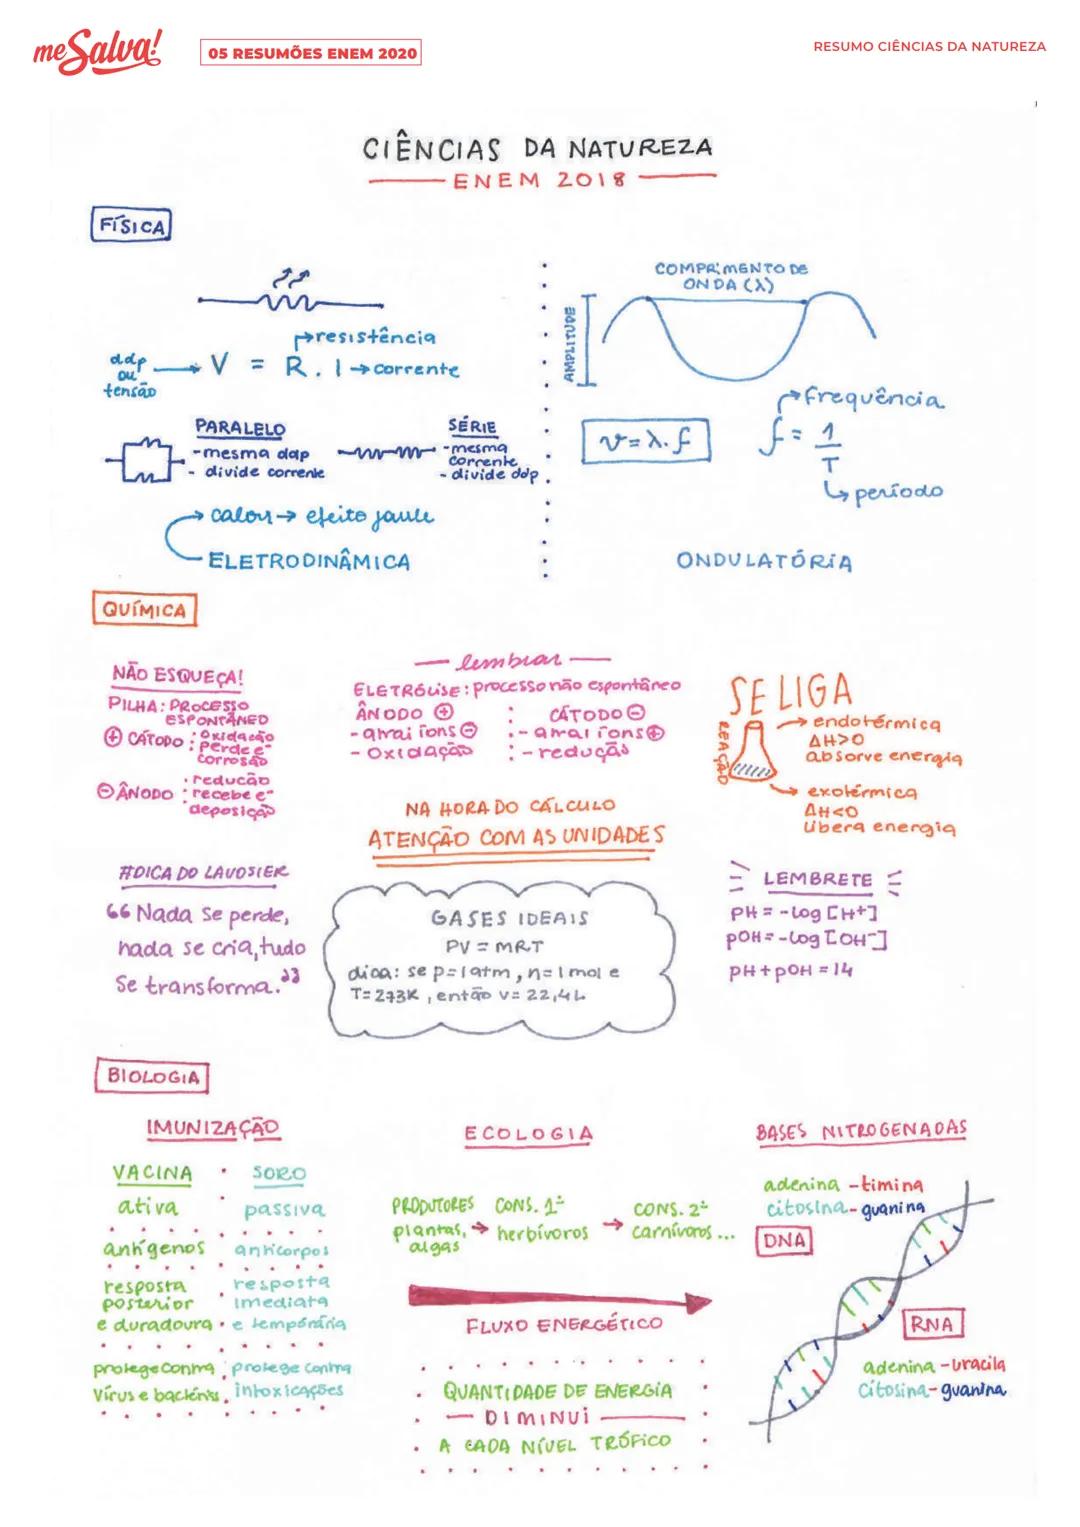 me Salva!
05 RESUMÕES ENEM 2020
RESUMO CIÊNCIAS DA NATUREZA
CIÊNCIAS DA NATUREZA
ENEM 2018
FÍSICA
resistência
ddp ou tensão → V = R . I → corrente
PARALELO
- mesma ddp
- divide corrente
SÉRIE
- mesma
corrente
- divide ddp
calor → efeito jaule
ELETRODINÂMICA
COMPRIMENTO DE
ONDA (λ)
AMPLITUDE
v = λ . f
frequência
f = 1/T
período
ONDULATÓRIA
QUÍMICA
NÃO ESQUEÇA!
PILHA: PROCESSO
ESPONTÂNEO
⊕ CÁTODO : oxidação
perde e⁻
corrosão
⊖ ÂNODO : redução
recebe e⁻
deposição
lembrar
ELETRÓLISE: processo não espontâneo
ÂNODO ⊕
- atrai íons ⊖
- oxidação
CÁTODO ⊖
- atrai íons ⊕
- redução
SE LIGA
REAÇÃO
→ endotérmica
ΔH>0
absorve energia
→ exotérmica
ΔH<0
libera energia
NA HORA DO CÁLCULO
ATENÇÃO COM AS UNIDADES
#DICA DO LAVOSIER
“Nada se perde,
nada se cria, tudo
se transforma.”
GASES IDEAIS
PV = MRT
dica: se p=1atm, n=1mol e
T=273K, então V= 22,4L
LEMBRETE
PH = -log [H+]
pOH = -log [OH⁻]
pH + pOH = 14
BIOLOGIA
IMUNIZAÇÃO
VACINA
SORO
ativa
passiva
antígenos
anticorpos
resposta
posterior
e duradoura
resposta
imediata
e temporária
protege contra
vírus e bactérias
protege contra
intoxicações
ECOLOGIA
PRODUTORES
plantas,
algas
→
CONS. 1º
herbívoros
→
CONS. 2º
carnívoros ...
FLUXO ENERGÉTICO
QUANTIDADE DE ENERGIA
DIMINUI
A CADA NÍVEL TRÓFICO
BASES NITROGENADAS
adenina - timina
citosina - guanina
DNA
RNA
adenina - uracila
citosina - guanina